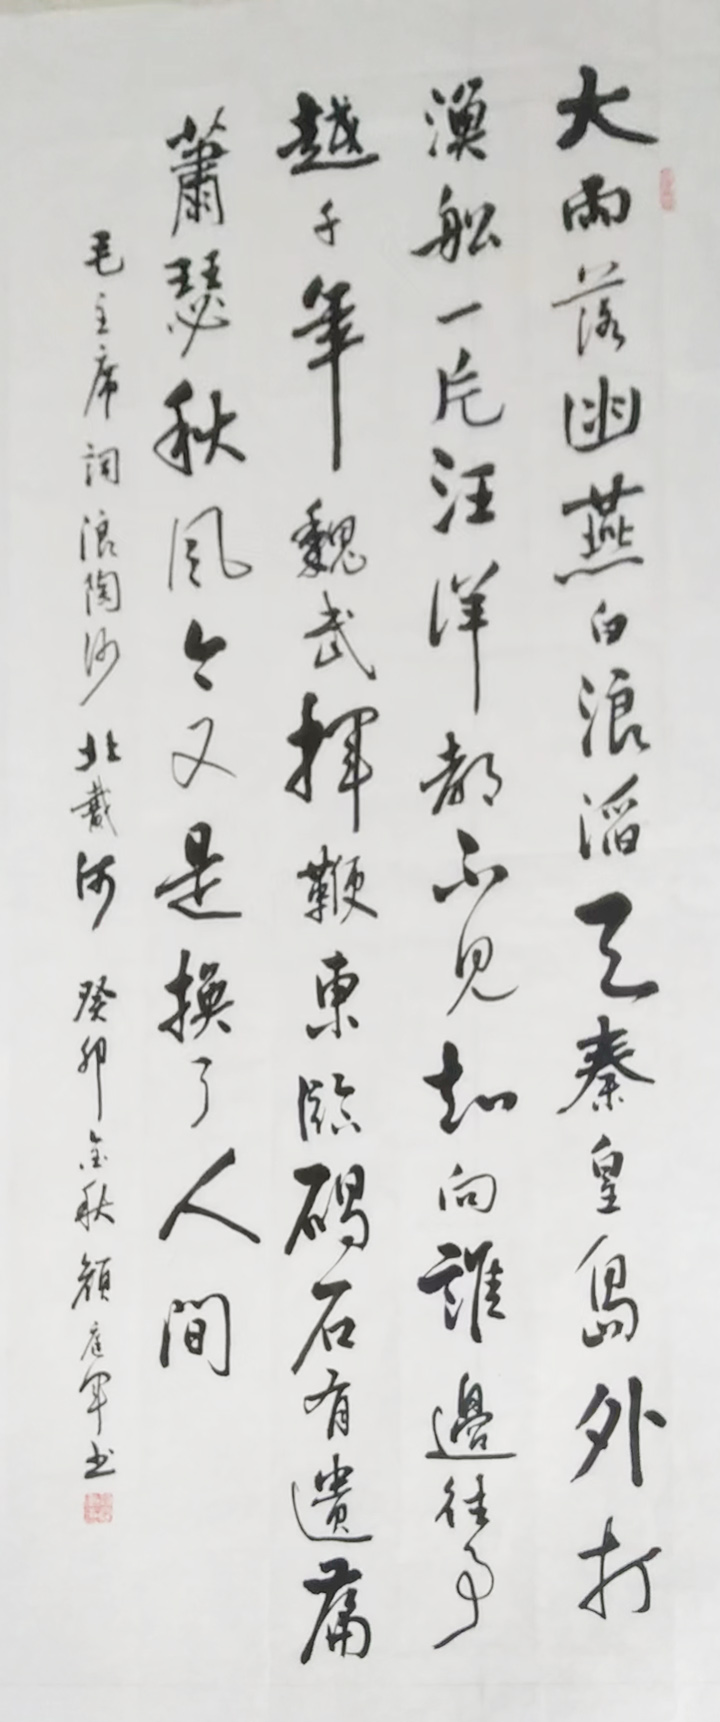 大雨落幽燕白浪滔天秦皇島外打
漁船一片汪洋都不見知向誰邊往事
越千年魏武揮鞭東臨碣石有遺篇
蕭瑟秋風今又是換了人間
毛主席詞浪陶沙北戴河 癸卯金秋顏庭军书